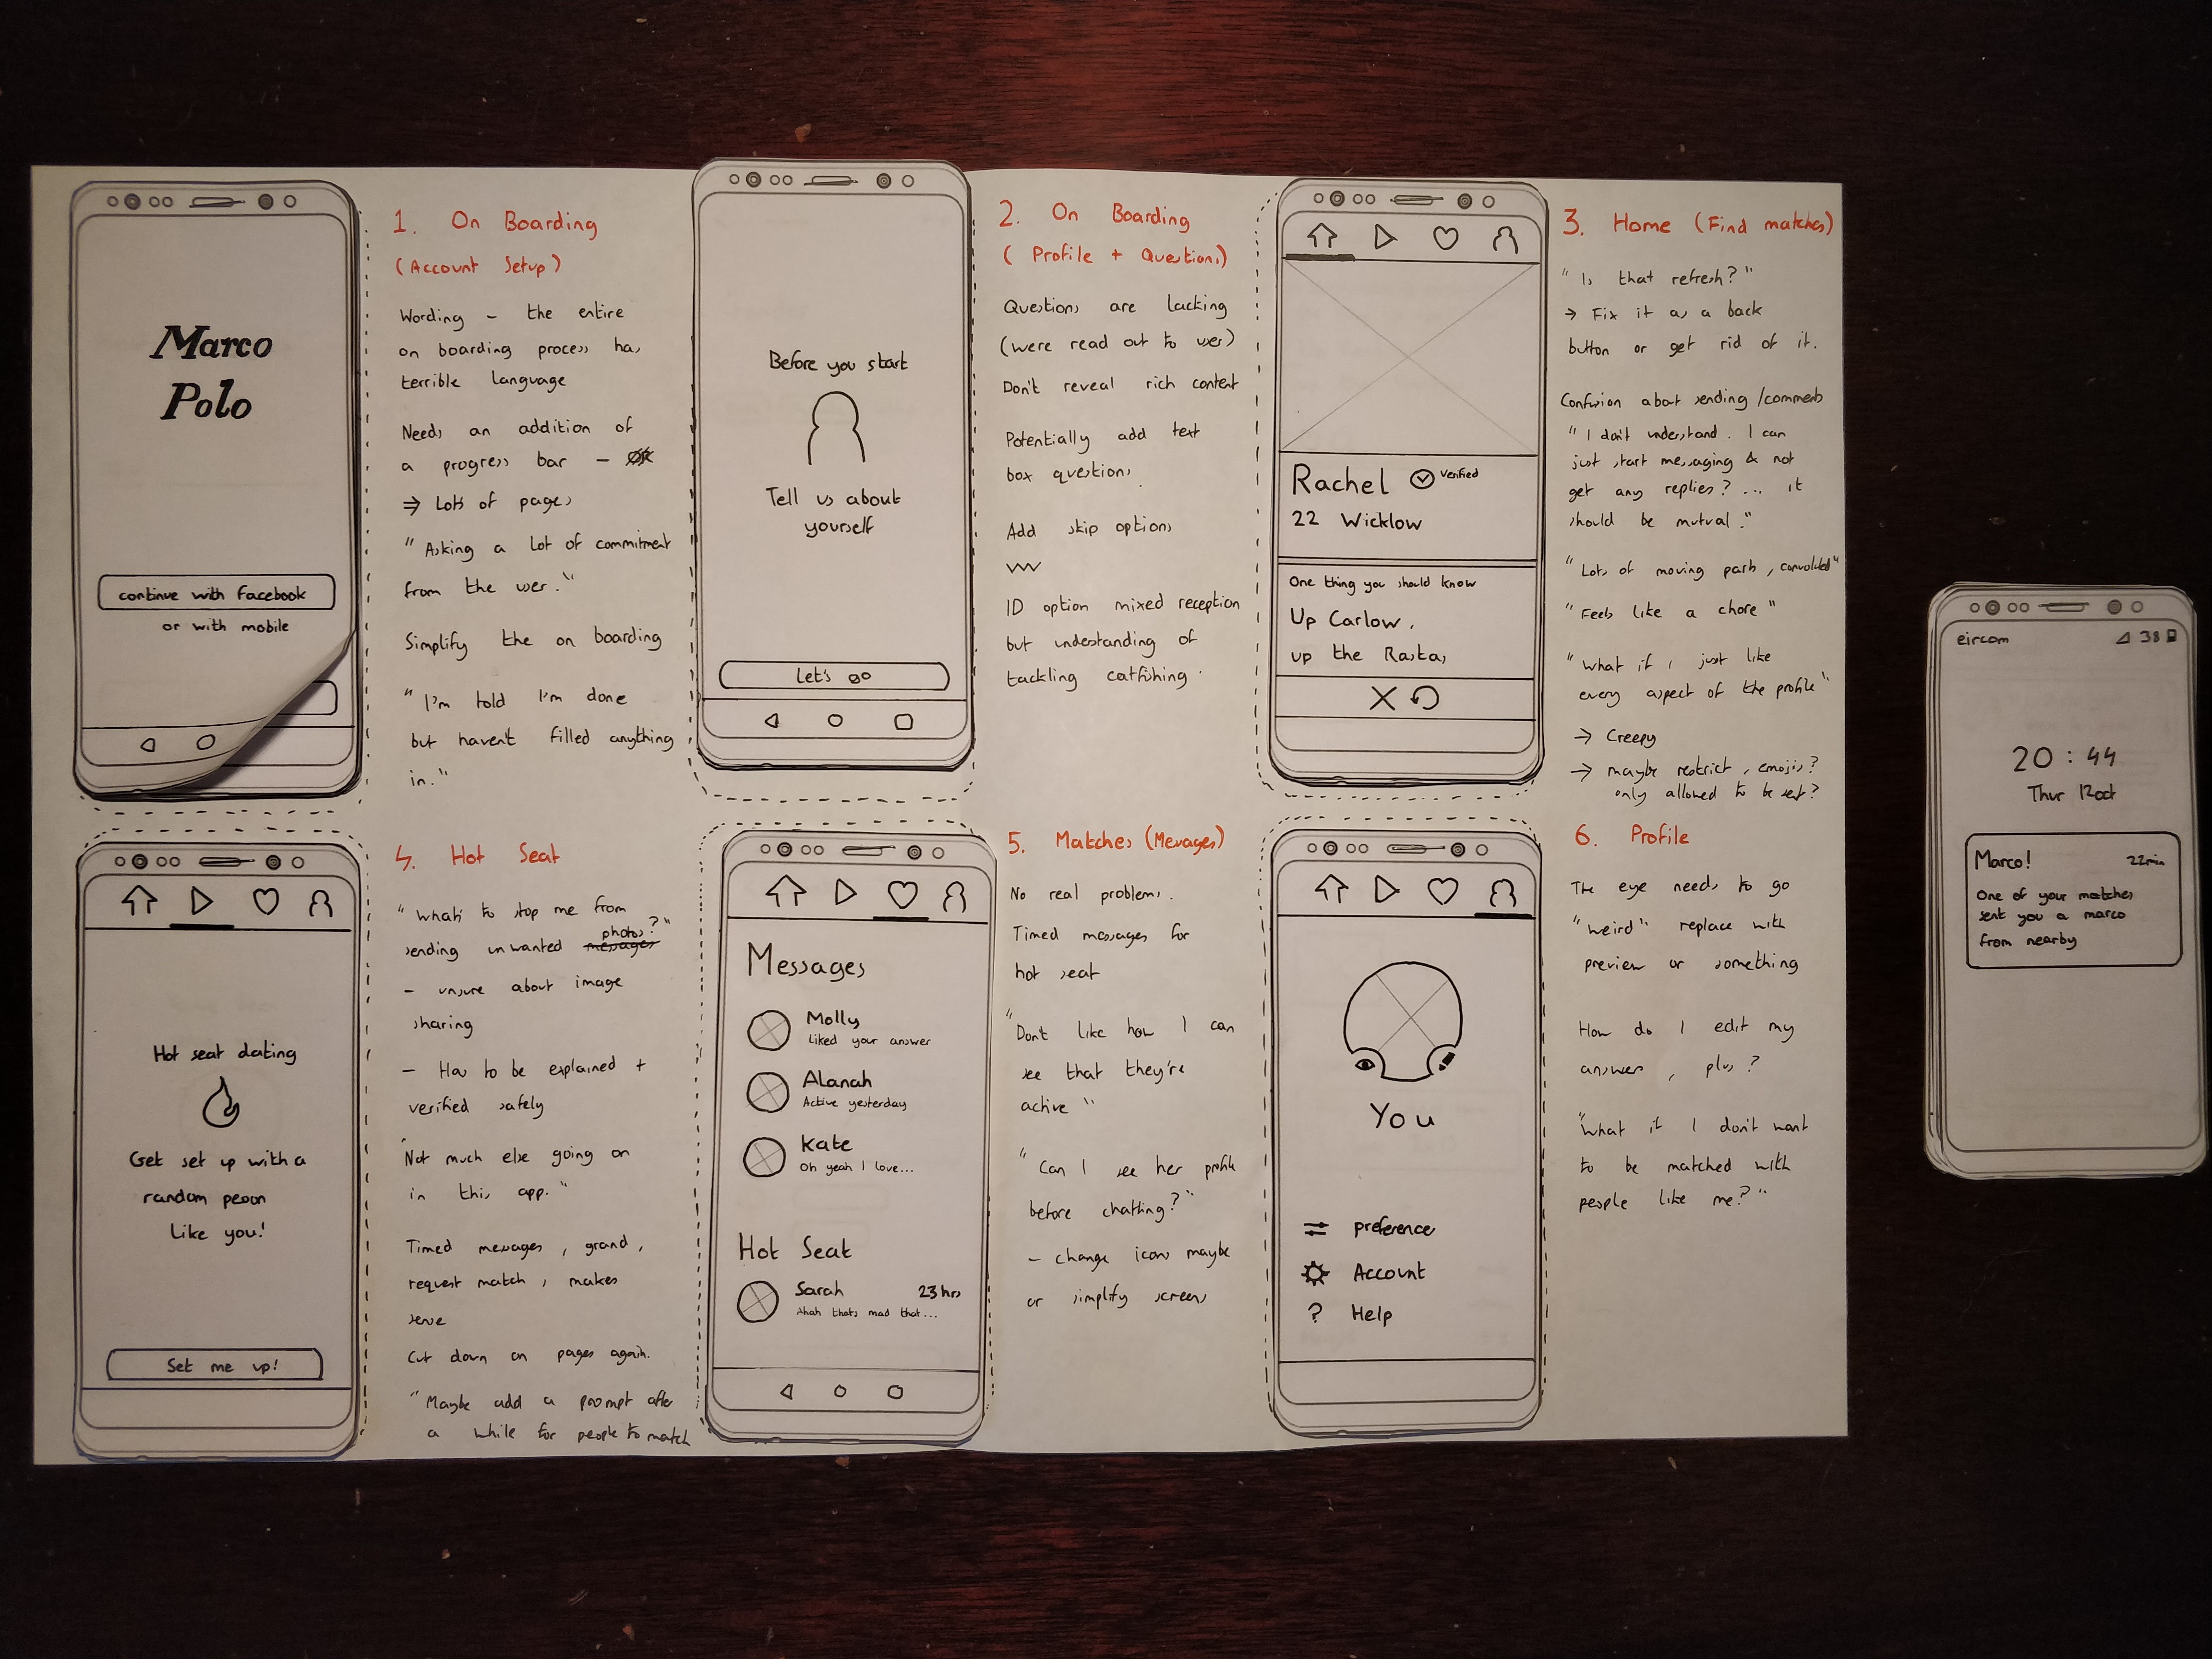 Marco
Polo
continue with facebook
or with mobile
1. On Boarding
(Account Setup)
Wording - the entire
on boarding process has
terrible language
Needs an addition of
a progress bar -
⇒ Lots of pages
"Asking a lot of commitment
from the user."
Simplify the on boarding
"I'm told I'm done
but haven't filled anything
in."
Before you start
Tell us about
yourself
Let's go
2. On Boarding
(Profile + Questions)
Questions are lacking
(were read out to user)
Don't reveal rich content
Potentially add text
box questions.
Add skip options
ID option mixed reception
but understanding of
tackling catfishing.
Rachel Verified
22 Wicklow
One thing you should know
Up Carlow,
up the Rastas
3. Home (Find matches)
"Is that refresh?"
→ Fix it as a back
button or get rid of it.
Confusion about sending/comments
"I don't understand. I can
just start messaging & not
get any replies? ... it
should be mutual."
"Lots of moving parts, convoluted"
"Feels like a chore"
"What if I just like
every aspect of the profile"
→ Creepy
→ maybe restrict, emojis?
only allowed to be sent?
Hot seat dating
Get set up with a
random person
like you!
Set me up!
4. Hot Seat
"What's to stop me from
sending unwanted messages photos?"
- unsure about image
sharing
- Has to be explained +
verified safely
"Not much else going on
in this app."
Timed messages, grand,
request match, makes
sense
Cut down on pages again.
"Maybe add a prompt after
a while for people to match
Messages
Molly
Liked your answer
Alanah
Active yesterday
Kate
Oh yeah I love...
Hot Seat
Sarah 23hrs
Ahah thats mad that...
5. Matches (Messages)
No real problems.
Timed messages for
hot seat
"Don't like how I can
see that they're
active"
"Can I see her profile
before chatting?"
- change icons maybe
or simplify screens
You
preferences
Account
? Help
6. Profile
The eye needs to go
"weird" replace with
preview or something
How do I edit my
answers, plus?
"What if I don't want
to be matched with
people like me?"
eircom 38
20:44
Thur 12 Oct
Marco! 22min
One of your matches
sent you a marco
from nearby